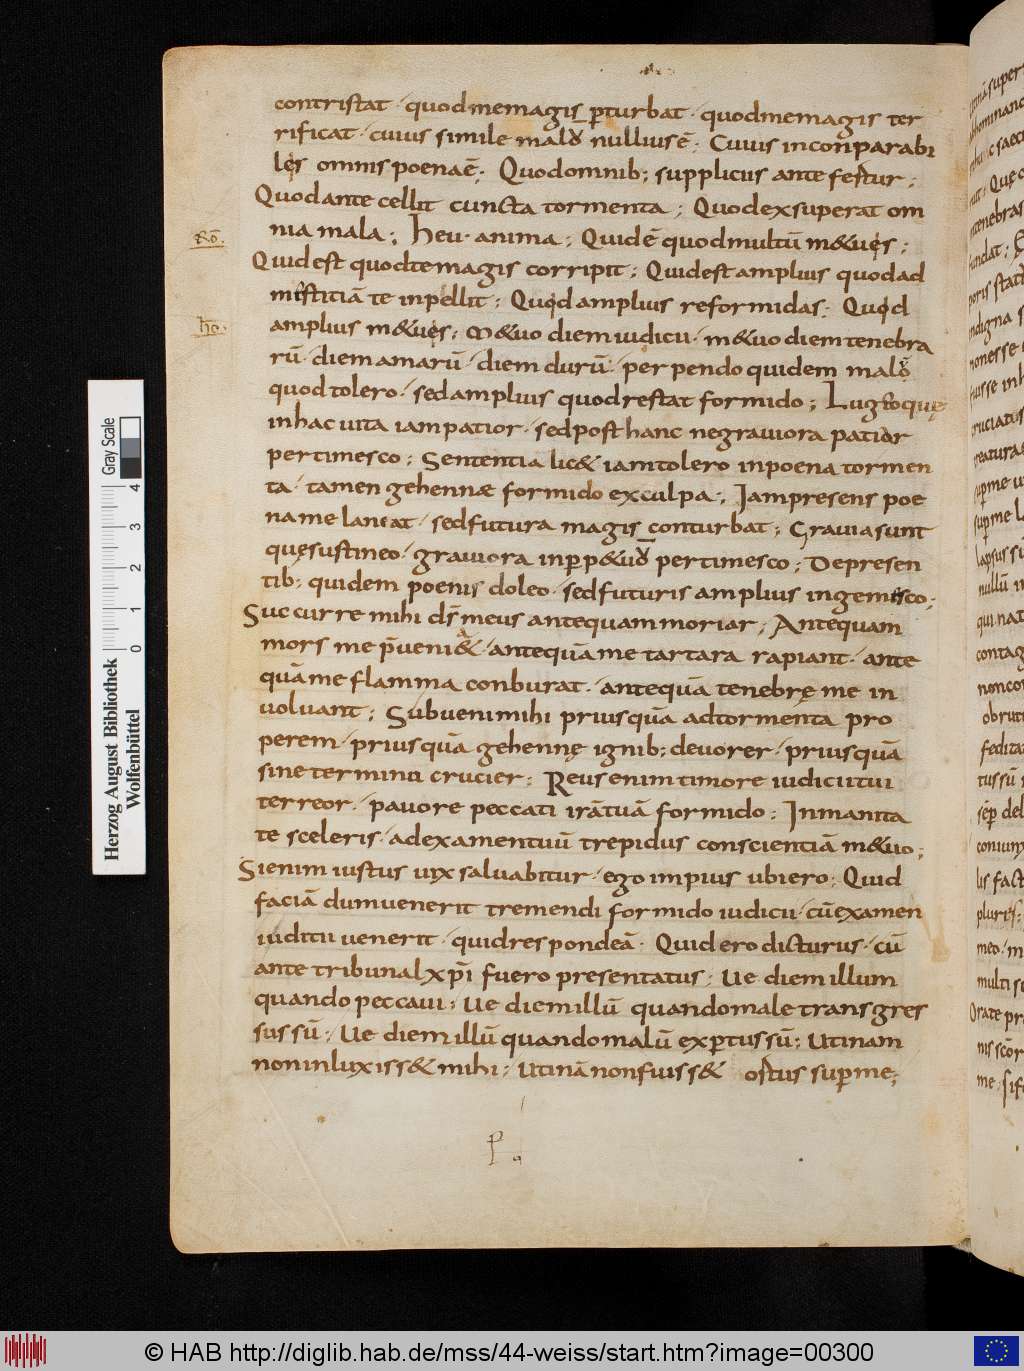 contristat · quod me magis pturbat · quod me magis ter
rificat · cuius simile malū nullius ē; Cuius inconparabi
lęs omnis poena ē; Quod omnib; suppliciis antefertur;
Quod antecellit cuncta tormenta; Quod exsuperat om
nia mala; Heu · anima; Quid ē quod multū m&uęs;
Rō.
Quid est quod te magis corripit; Quid est amplius quod ad
męstitiā te inpellit; Quod amplius reformidas; Quod
amplius m&uęs; M&uo diem iudicii · m&uo diem tenebra
hō.
rū · diem amarū · diem durū · perpendo quidem malū
quod tolero · sed amplius quod restat formido; Lugeoque
in hac uita iam patior · sed post hanc ne grauiora patiar
pertimesco; Sententia lic& iam tolero in poena tormen
ta · tamen gehennæ formido ex culpa; Iam presens poe
na me laniat · sed futura magis conturbat; Grauia sunt
quę sustineo · grauiora in pp&uū pertimesco; De presen
tib; quidem poenis doleo · sed futuris amplius ingemisco;
Succurre mihi ds meus antequam moriar; Antequam
mors me pueni& · antequā me tartara rapiant · ante
quā me flamma conburat · antequā tenebrę me in
uoluant; Subueni mihi priusquā ad tormenta pro
perem · priusquā gehennę ignib; deuorer · priusquā
sine termino crucier; Reus enim timore iudicii tui
terreor · pauore peccati irā tuā formido; Inmanita
te sceleris · ad examen tuū trepidus conscientiā m&uo;
Si enim iustus uix saluabitur · ego impius ubi ero; Quid
faciā dum uenerit tremendi formido iudicii · cū examen
iuditii uenerit · quid respondeā · Quid ero dicturus · cū
ante tribunal xpi fuero presentatus; Ue diem illum
quando peccaui; Ue diem illū quando male transgres
sus sū; Ue diem illū quando malū expertus sū; Utinam
non inluxiss& mihi; Utinā non fuiss& ortus super me;
Herzog August Bibliothek
Wolfenbüttel
Gray Scale
0 1 2 3 4
© HAB http://diglib.hab.de/mss/44-weiss/start.htm?image=00300